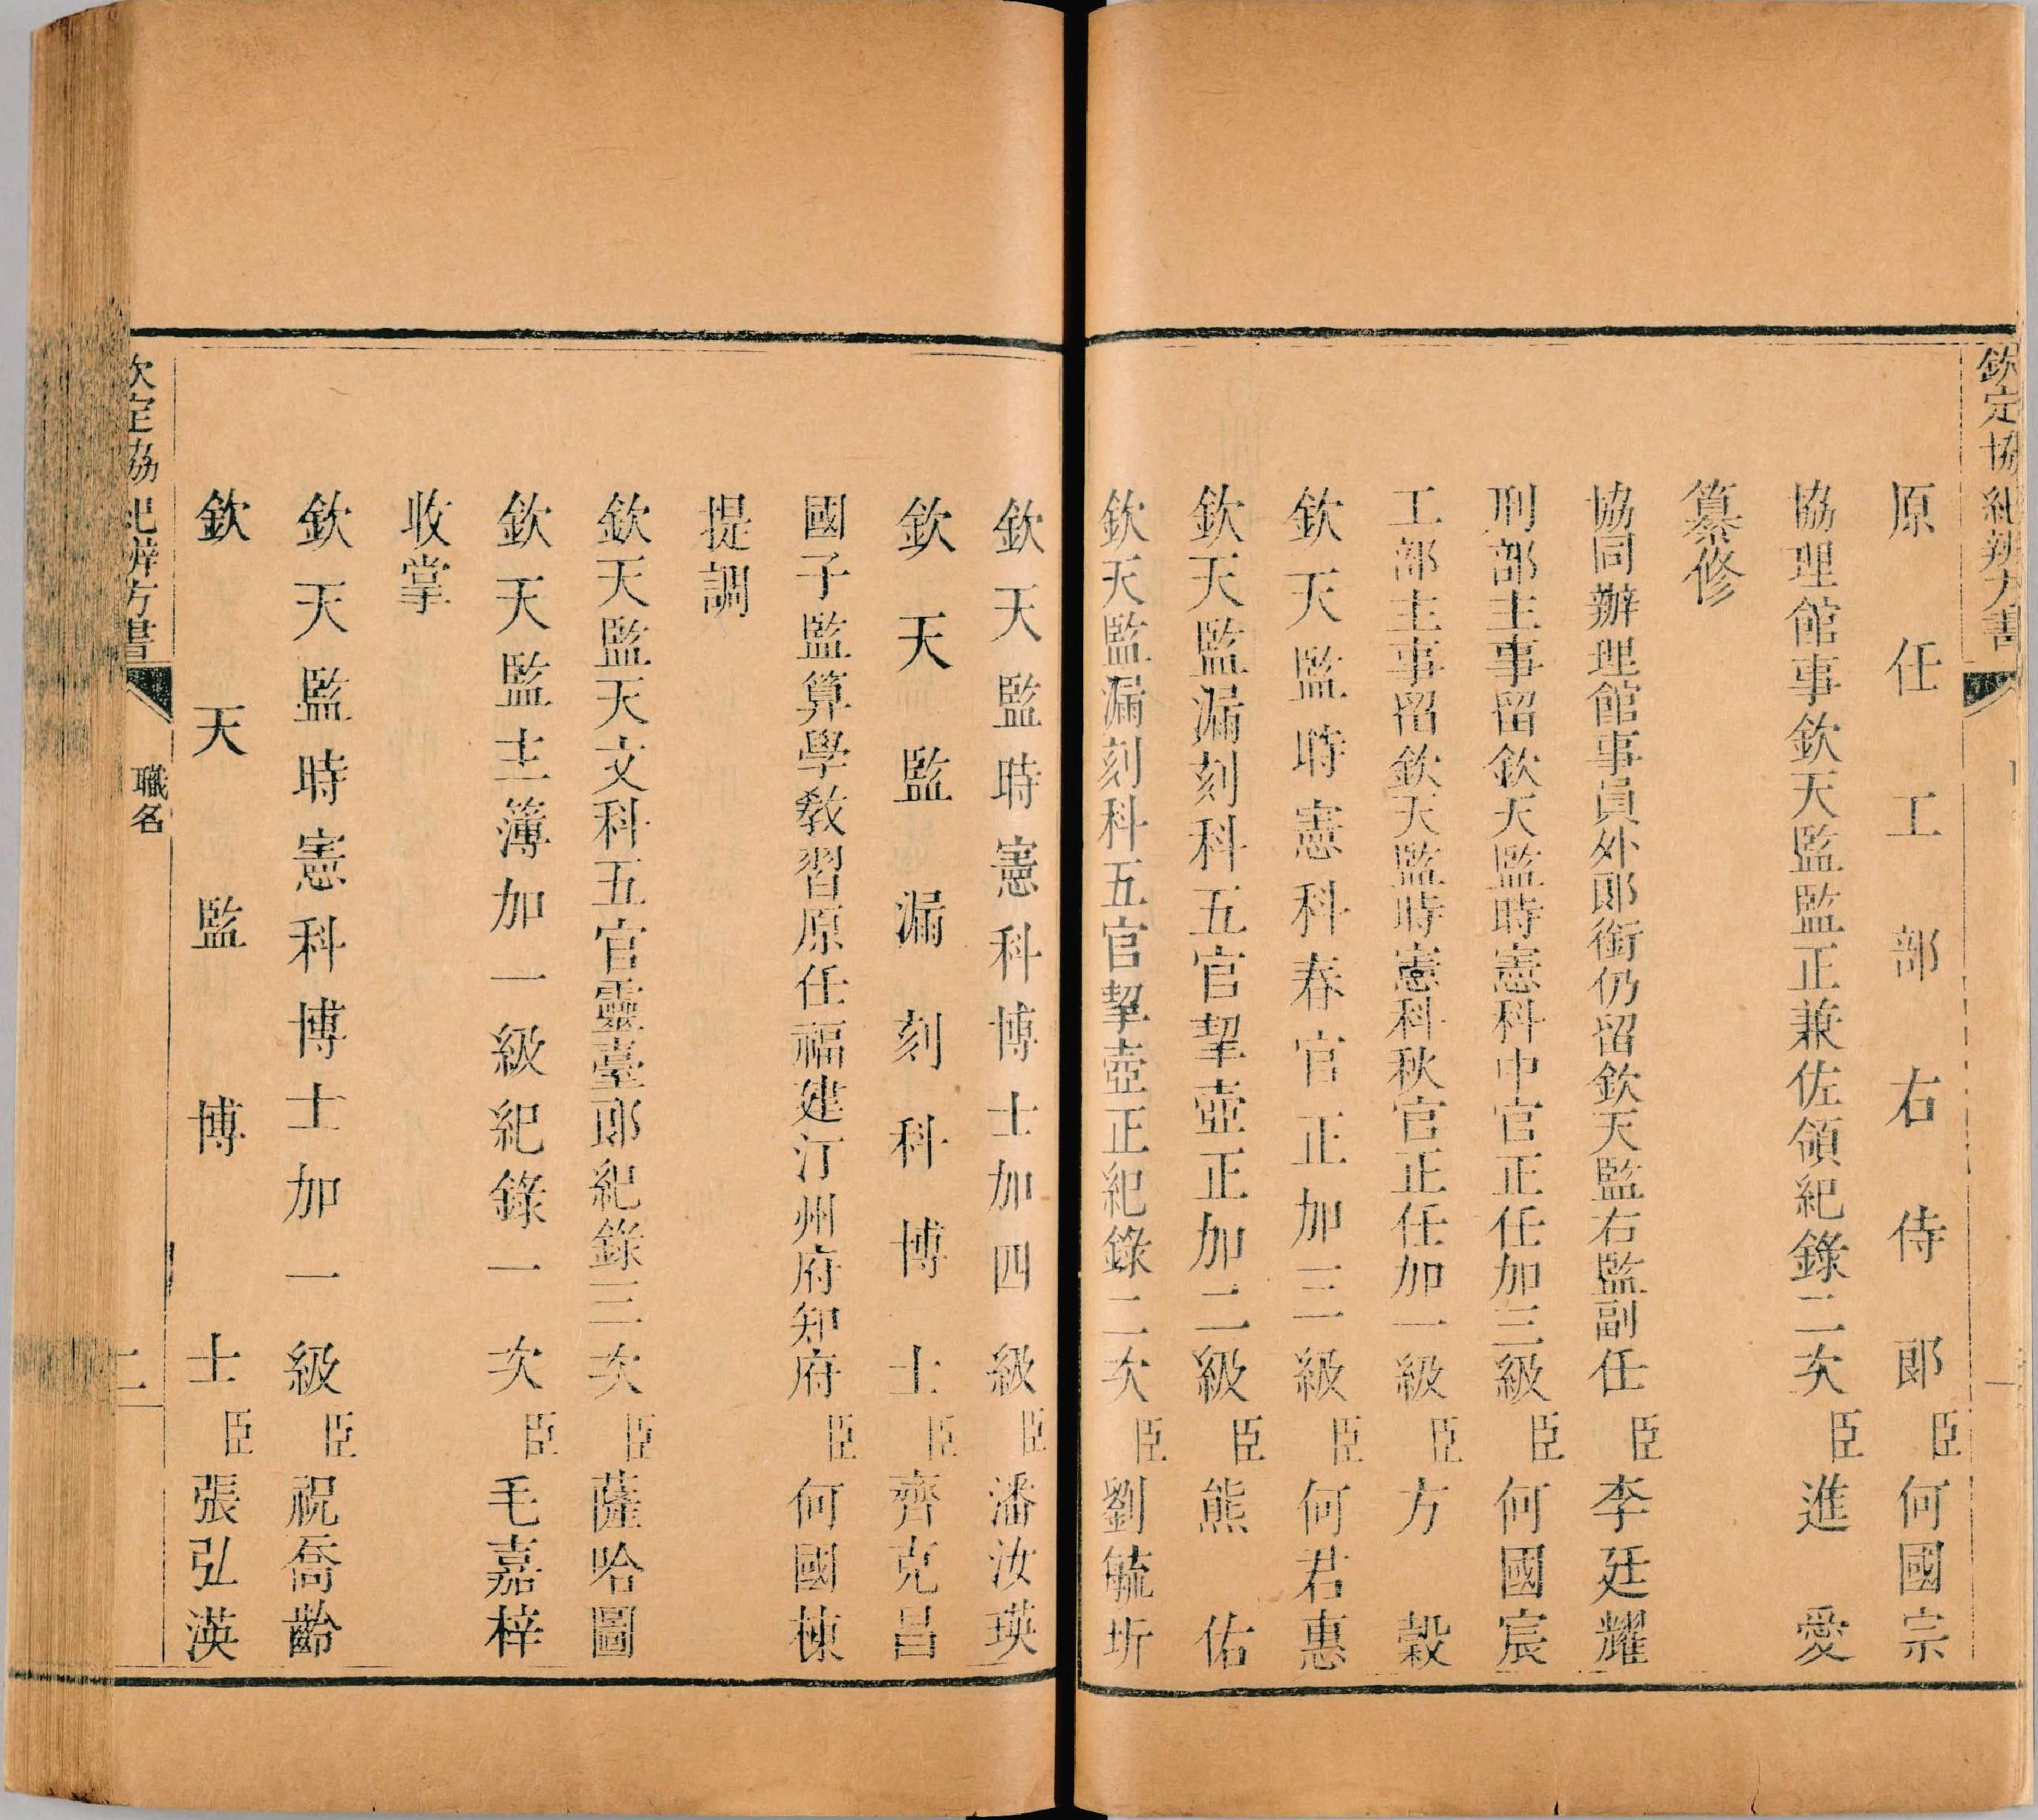 欽定協紀辨方書
原任工部右侍郎臣何國宗
協理館事欽天監監正兼佐領紀錄二次臣進愛
纂修
協同辦理館事員外郎銜仍留欽天監右監副任臣李廷耀
刑部主事留欽天監時憲科中官正任加三級臣何國宸
工部主事留欽天監時憲科秋官正任加一級臣方榖
欽天監時憲科春官正加三級臣何君惠
欽天監漏刻科五官挈壺正加二級臣熊佑
欽天監漏刻科五官挈壺正紀錄二次臣劉毓圻
欽天監時憲科博士加四級臣潘汝瑛
欽天監漏刻科博士臣齊克昌
國子監算學教習原任福建汀州府知府臣何國棟
提調
欽天監天文科五官靈臺郎紀錄三次臣薩哈圖
欽天監主簿加一級紀錄一次臣毛嘉梓
收掌
欽天監時憲科博士加一級臣祝喬齡
欽天監博士臣張弘漢
欽定協紀辨方書 職名 二